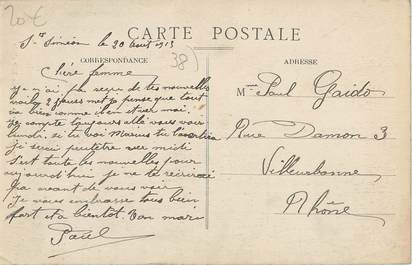 20€
CARTE POSTALE
St Siméon le 20 Août 1913
38)
CORRESPONDANCE
ADRESSE
Chère femme
je n'ai pas reçu de tes nouvelles
voila 2 jours mes je pense que tout
va bien comme mon et ver moi.
je compte toujours allé vous voir
lundi, si tu voi Marius tu l'avertira
je serai peutêtre vers midi
S'est toute les nouvelles pour
aujourd'hui je ne te réécrirai
pas avant de vous voir
Je vous embrasse tous bien
fort et a bientôt. Ton mari
Paul
Mme Paul Gaido
Rue Damon 3
Villeurbanne
Rhône